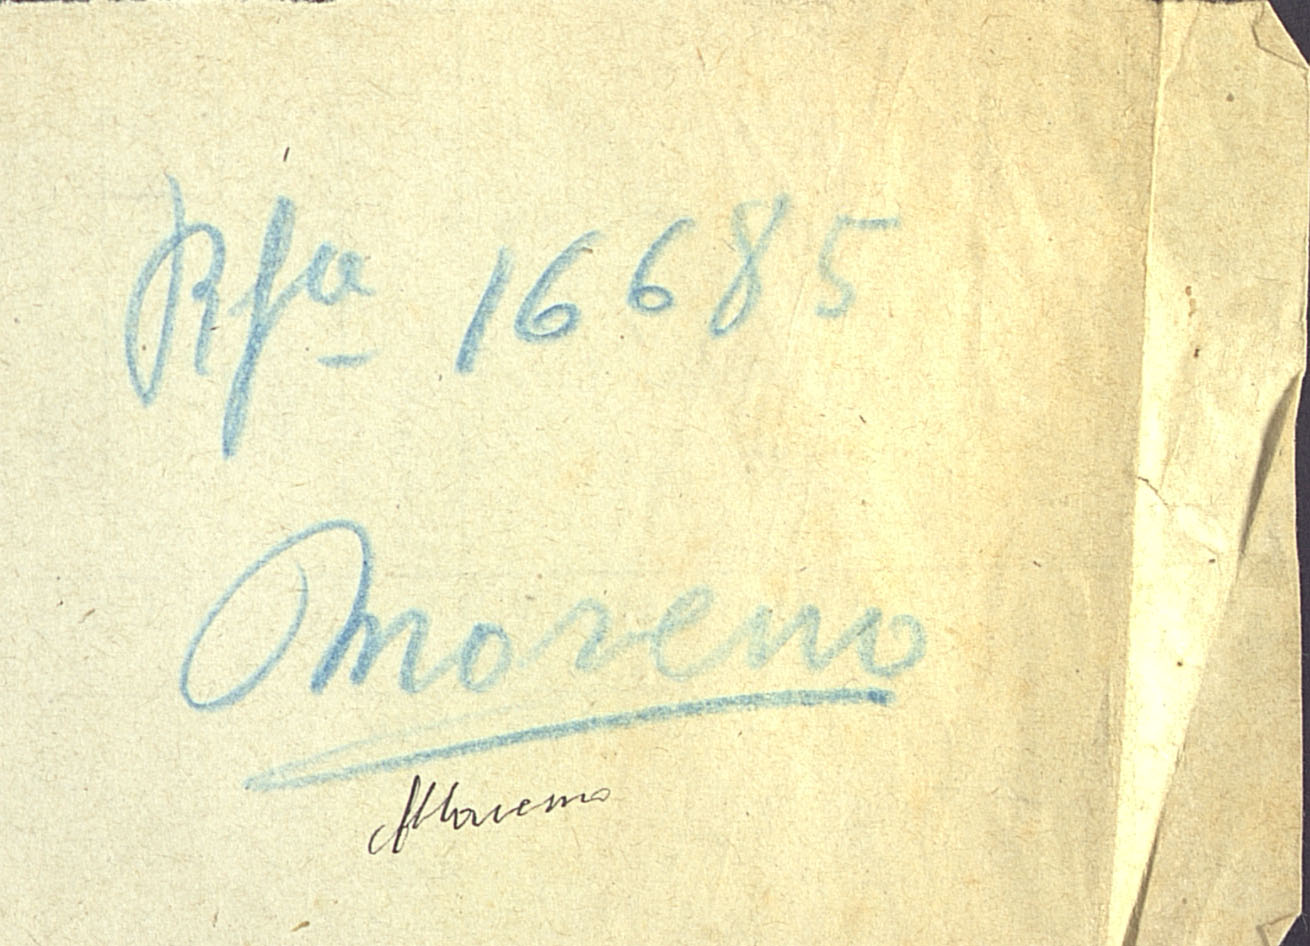 Rfa 16685
Moreno
Moreno